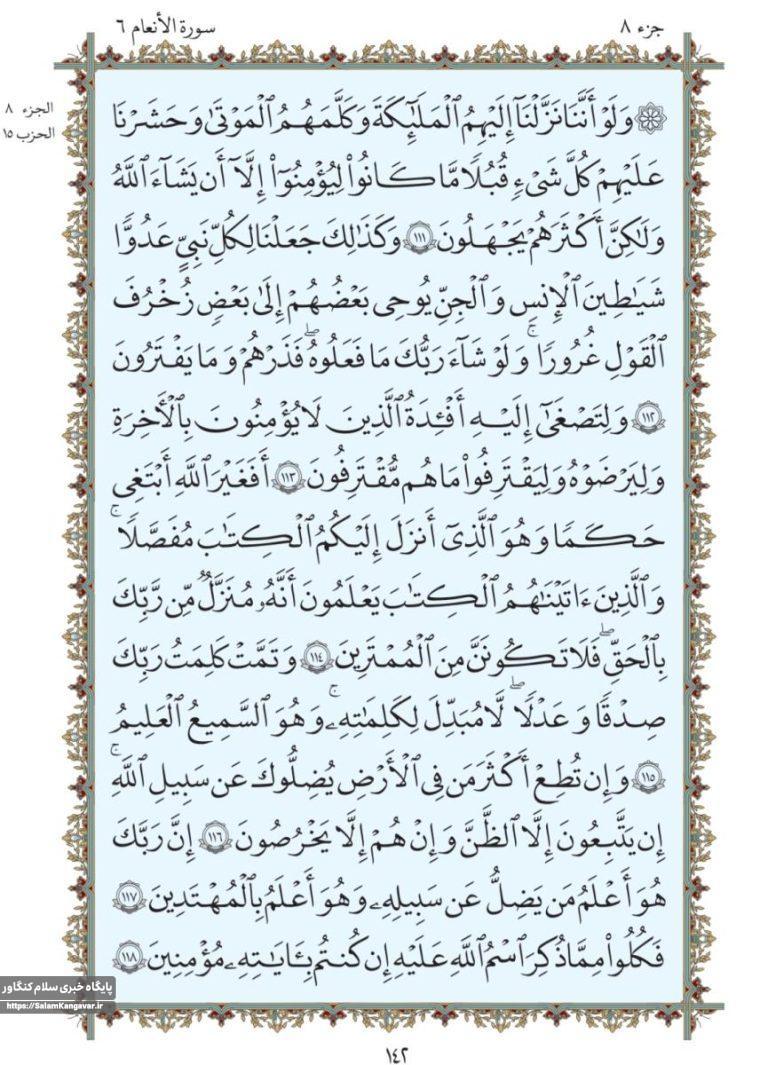 جزء ٨
سورة الأنعام ٦
الجزء ٨
الحزب ١٥
۞ وَلَوْ أَنَّنَا نَزَّلْنَآ إِلَيْهِمُ ٱلْمَلَـٰٓئِكَةَ وَكَلَّمَهُمُ ٱلْمَوْتَىٰ وَحَشَرْنَا
عَلَيْهِمْ كُلَّ شَىْءٍ قُبُلًا مَّا كَانُوا۟ لِيُؤْمِنُوٓا۟ إِلَّآ أَن يَشَآءَ ٱللَّهُ
وَلَـٰكِنَّ أَكْثَرَهُمْ يَجْهَلُونَ ١١١ وَكَذَٰلِكَ جَعَلْنَا لِكُلِّ نَبِىٍّ عَدُوًّا
شَيَـٰطِينَ ٱلْإِنسِ وَٱلْجِنِّ يُوحِى بَعْضُهُمْ إِلَىٰ بَعْضٍ زُخْرُفَ
ٱلْقَوْلِ غُرُورًا ۚ وَلَوْ شَآءَ رَبُّكَ مَا فَعَلُوهُ ۖ فَذَرْهُمْ وَمَا يَفْتَرُونَ
١١٢ وَلِتَصْغَىٰٓ إِلَيْهِ أَفْـِٔدَةُ ٱلَّذِينَ لَا يُؤْمِنُونَ بِٱلْـَٔاخِرَةِ
وَلِيَرْضَوْهُ وَلِيَقْتَرِفُوا۟ مَا هُم مُّقْتَرِفُونَ ١١٣ أَفَغَيْرَ ٱللَّهِ أَبْتَغِى
حَكَمًا وَهُوَ ٱلَّذِىٓ أَنزَلَ إِلَيْكُمُ ٱلْكِتَـٰبَ مُفَصَّلًا ۚ
وَٱلَّذِينَ ءَاتَيْنَـٰهُمُ ٱلْكِتَـٰبَ يَعْلَمُونَ أَنَّهُۥ مُنَزَّلٌ مِّن رَّبِّكَ
بِٱلْحَقِّ ۖ فَلَا تَكُونَنَّ مِنَ ٱلْمُمْتَرِينَ ١١٤ وَتَمَّتْ كَلِمَتُ رَبِّكَ
صِدْقًا وَعَدْلًا ۖ لَّا مُبَدِّلَ لِكَلِمَـٰتِهِۦ ۚ وَهُوَ ٱلسَّمِيعُ ٱلْعَلِيمُ
١١٥ وَإِن تُطِعْ أَكْثَرَ مَن فِى ٱلْأَرْضِ يُضِلُّوكَ عَن سَبِيلِ ٱللَّهِ ۚ
إِن يَتَّبِعُونَ إِلَّا ٱلظَّنَّ وَإِنْ هُمْ إِلَّا يَخْرُصُونَ ١١٦ إِنَّ رَبَّكَ
هُوَ أَعْلَمُ مَن يَضِلُّ عَن سَبِيلِهِۦ وَهُوَ أَعْلَمُ بِٱلْمُهْتَدِينَ ١١٧
فَكُلُوا۟ مِمَّا ذُكِرَ ٱسْمُ ٱللَّهِ عَلَيْهِ إِن كُنتُم بِـَٔايَـٰتِهِۦ مُؤْمِنِينَ ١١٨
پایگاه خبری سلام کنگاور
https://SalamKangavar.ir
١٤٢